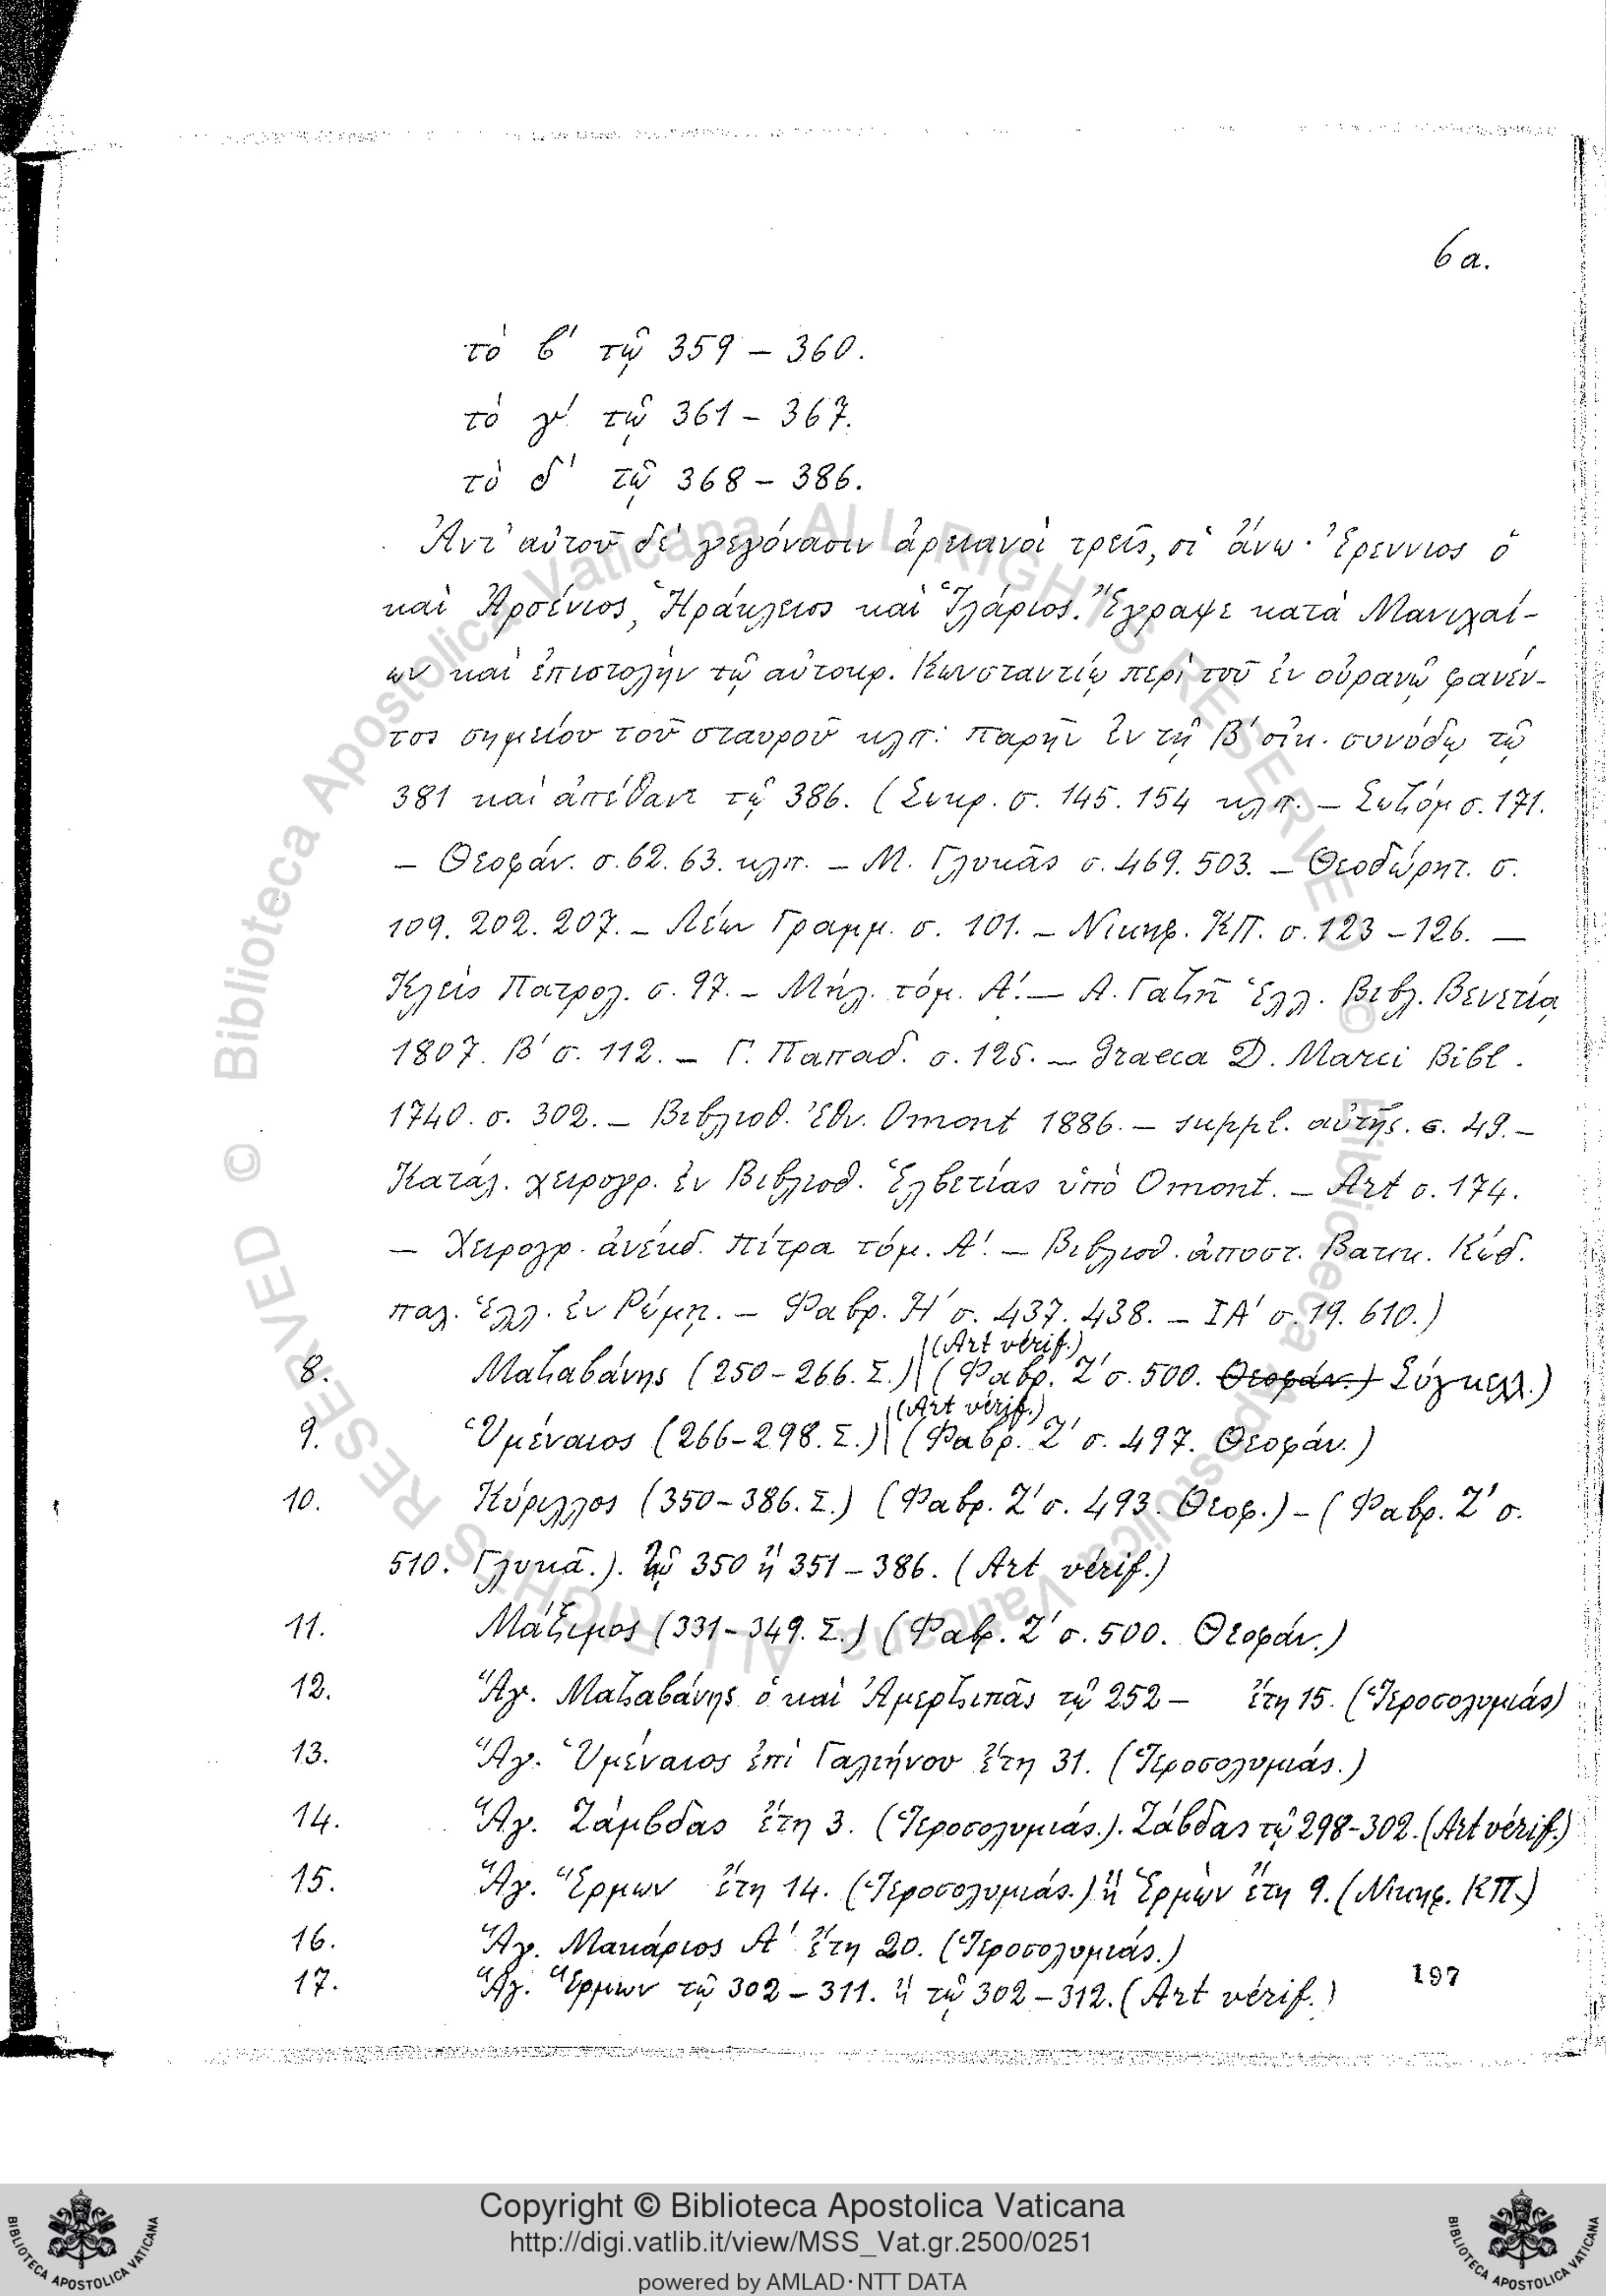 6 a.
τὸ β' τῷ 359 – 360.
τὸ γ' τῷ 361 – 367.
τὸ δ' τῷ 368 – 386.
Ἀντ' αὐτοῦ δὲ γεγόνασιν ἀρειανοὶ τρεῖς, οἱ ἄνω· Ἐρέννιος ὁ
καὶ Ἀρσένιος, Ἡράκλειος καὶ Ἱλάριος. Ἔγραψε κατὰ Μανιχαί-
ων καὶ ἐπιστολὴν τῷ αὐτοκρ. Κωνσταντίῳ περὶ τοῦ ἐν οὐρανῷ φανέν-
τος σημείου τοῦ σταυροῦ κλπ: παρῆν ἐν τῇ Β' οἰκ. συνόδῳ τῷ
381 καὶ ἀπέθανε τῷ 386. (Σωκρ. σ. 145. 154 κλπ. – Σωζόμ σ. 171.
– Θεοφάν. σ. 62. 63. κλπ. – Μ. Γλυκᾶς σ. 469. 503. – Θεοδώρητ. σ.
109. 202. 207. – Λέων Γραμμ. σ. 101. – Νικηφ. ΚΠ. σ. 123 – 126. –
Κλεὶς Πατρολ. σ. 97. – Μήλ. τόμ. Α'. – Α. Γαζῆ Ἑλλ. Βιβλ. Βενετίᾳ
1807. Β' σ. 112. – Γ. Παπαδ. σ. 125. – Graeca D. Marci Bibl.
1740. σ. 302. – Βιβλιοθ. Ἐθν. Omont 1886. – suppl. αὐτῆς. σ. 49. –
Κατάλ. χειρογρ. ἐν Βιβλιοθ. Ἑλβετίας ὑπὸ Omont. – Art σ. 174.
– Χειρογρ. ἀνέκδ. Πίτρα τόμ. Α'. – Βιβλιοθ. ἀποστ. Βατικ. Κώδ.
παλ. Ἑλλ. ἐν Ρώμῃ. – Φαβρ. Η' σ. 437. 438. – ΙΑ' σ. 19. 610.)
(Art vérif.)
8. Μαζαβάνης (250 – 266. Σ.) (Φαβρ. Ζ' σ. 500. Θεοφάν.) Σύγκελλ.)
(Art vérif.)
9. Ὑμέναιος (266 – 298. Σ.) (Φαβρ. Ζ' σ. 497. Θεοφάν.)
10. Κύριλλος (350 – 386. Σ.) (Φαβρ. Ζ' σ. 493. Θεοφ.) – (Φαβρ. Ζ' σ.
510. Γλυκᾶ.). τῷ 350 ἢ 351 – 386. (Art vérif.)
11. Μάξιμος (331 – 349. Σ.) (Φαβρ. Ζ' σ. 500. Θεοφάν.)
12. Ἅγ. Μαζαβάνης ὁ καὶ Ἀμερζιπᾶς τῷ 252 – ἔτη 15. (Ἱεροσολυμιάς)
13. Ἅγ. Ὑμέναιος ἐπὶ Γαλιήνου ἔτη 31. (Ἱεροσολυμιάς.)
14. Ἅγ. Ζάμβδας ἔτη 3. (Ἱεροσολυμιάς.). Ζάβδας τῷ 298 – 302. (Art vérif.)
15. Ἅγ. Ἕρμων ἔτη 14. (Ἱεροσολυμιάς.) ἢ Ἑρμὼν ἔτη 9. (Νικηφ. ΚΠ.)
16. Ἅγ. Μακάριος Α' ἔτη 20. (Ἱεροσολυμιάς.)
17. Ἅγ. Ἕρμων τῷ 302 – 311. ἢ τῷ 302 – 312. (Art vérif.)
197
© Biblioteca Apostolica Vaticana ALL RIGHTS RESERVED
Copyright © Biblioteca Apostolica Vaticana
http://digi.vatlib.it/view/MSS_Vat.gr.2500/0251
powered by AMLAD·NTT DATA
BIBLIOTECA APOSTOLICA VATICANA
BIBLIOTECA APOSTOLICA VATICANA